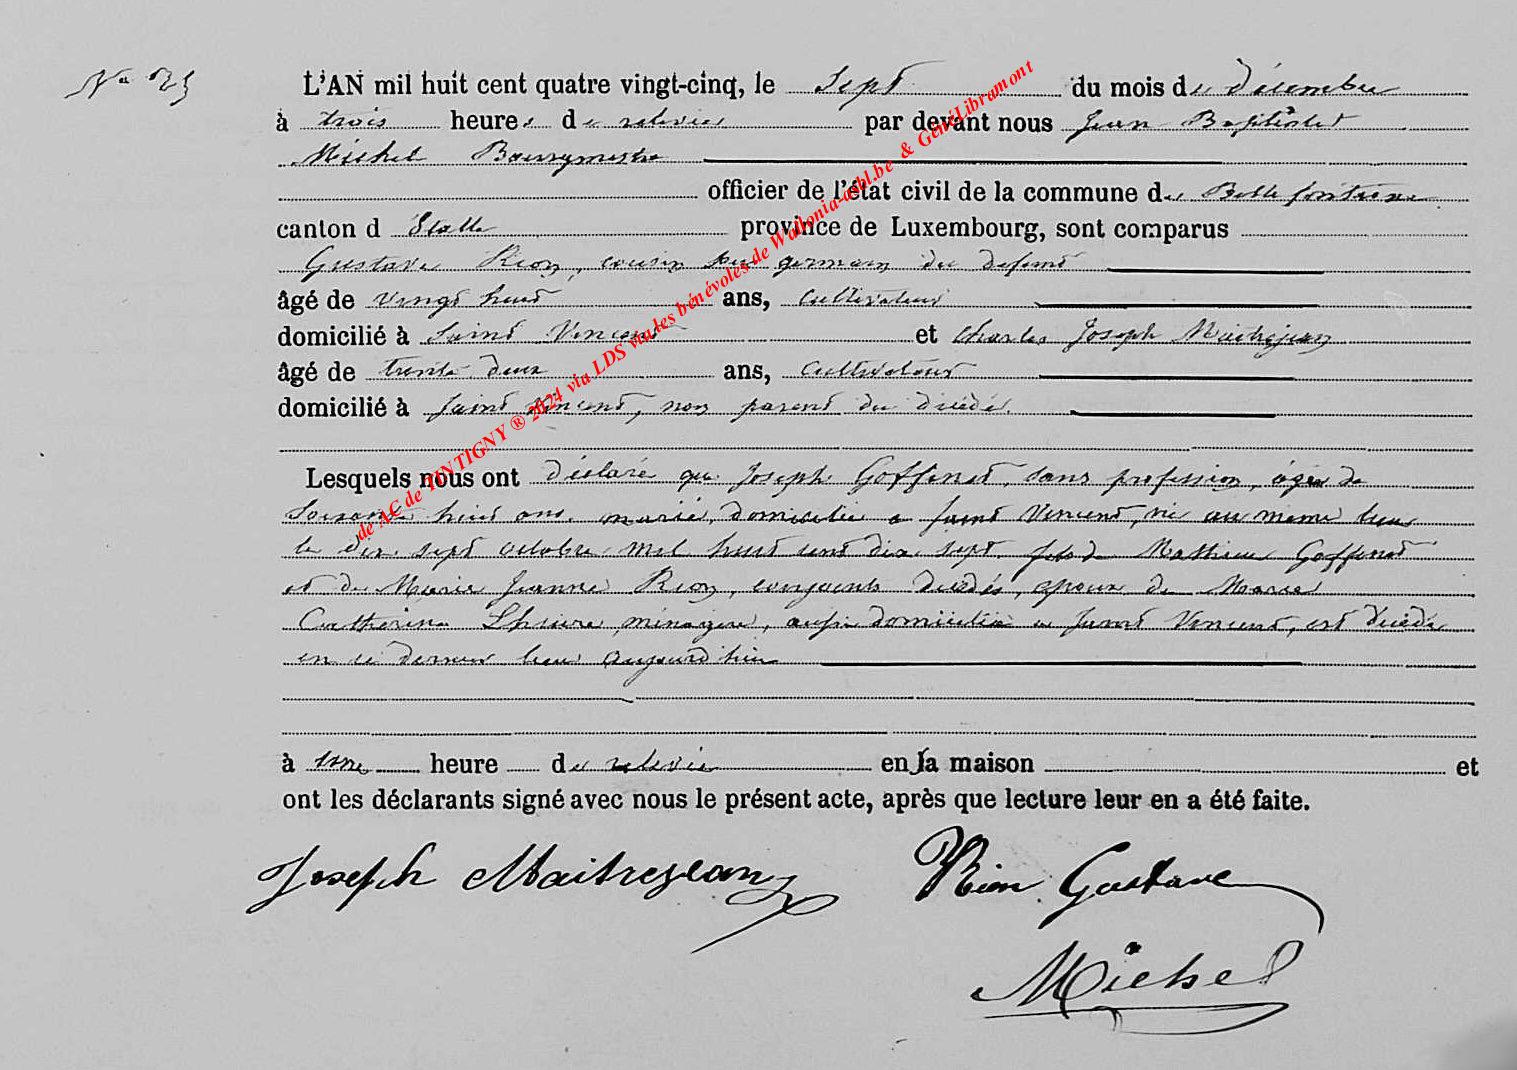 N° 25
L'AN mil huit cent quatre vingt-cinq, le sept du mois de décembre
à trois heures de relevée par devant nous Jean Baptiste
Michel Bourgmestre
officier de l'état civil de la commune de Bellefontaine
canton d'Etalle province de Luxembourg, sont comparus
Gustave Rion, cousin germain du defunt
âgé de vingt huit ans, cultivateur
domicilié à Saint Vincent et Charles Joseph Maitrejean
âgé de trente deux ans, cultivateur
domicilié à Saint Vincent, non parent du décédé.
Lesquels nous ont déclaré que Joseph Goffinet, sans profession, âgé de
Soixante huit ans, marié, domicilié a Saint Vincent, né au meme lieu
le dix sept octobre mil huit cent dix sept fils de Mathieu Goffinet
et de Marie Jeanne Rion, conjoints decédés, epoux de Marie
Catherine Lhuire, ménagère, aussi domiciliée a Saint Vincent, est décédé
en ce dernier lieu aujourd'hui
à une heure de relevée en la maison et
ont les déclarants signé avec nous le présent acte, après que lecture leur en a été faite.
Joseph Maitrejean Rion Gustave
Michel
de AC de TINTIGNY ® 2024 via LDS via les bénévoles de Wallonia-asbl.be & GénéLibramont